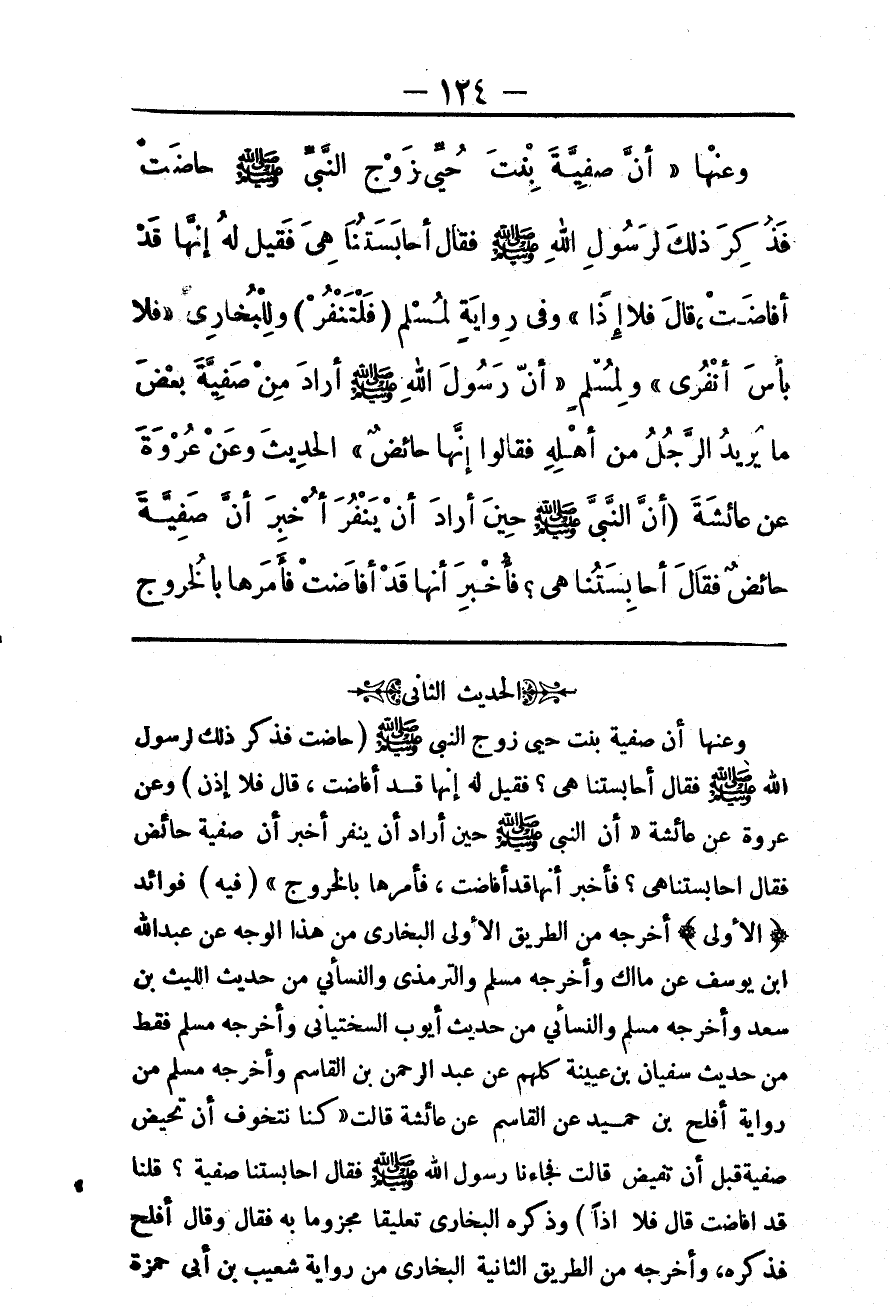 — ١٢٤ —
وعنْها « أنَّ صفِيَّةَ بِنْتَ حُيَيٍّ زَوْجِ النَّبيِّ ﷺ حاضَتْ
فَذُكِرَ ذلكَ لرَسُولِ اللهِ ﷺ فقال أحابَسَتنُاَ هِىَ فَقيل لهُ إنَّها قَدْ
أفاضَتْ،قالَ فلاإِذًا » وفى رِوايَةٍ لمُسْلم (فَلْتَنْفُرْ) ولِلْبُخارِى «فلا
بأسَ أنْفُرى » ولمُسْلمٍ « أنّ رَسُولَ اللهِ ﷺ أرادَ مِنْ صَفِيَّةَ بعْضَ
ما يُريدُ الرَّجُلُ من أهْلِهِ فقالوا إنَّها حائضٌ » الحديثَ وعَنْ عُرْوَةَ
عن عائشَةَ (أنَّ النَّبيَّ ﷺ حِينَ أرادَ أنْ يَنْفُرَ أُخْبِرَ أنَّ صَفِيَّةَ
حائضٌ فقَالَ أحابِسَتُنا هى ؟ فأُخْبِرَ أنها قَدْ أفاضَتْ فأَمَرَها بالخُروج
الحديث الثانى
وعنها أن صفية بنت حيى زوج النبى ﷺ (حاضت فذكر ذلك لرسول
الله ﷺ فقال أحابستنا هى ؟ فقيل له إنها قد أفاضت ، قال فلا إذن ) وعن
عروة عن عائشة « أن النبى ﷺ حين أراد أن ينفر أخبر أن صفية حائض
فقال احابستناهى ؟ فأخبر أنهاقدأفاضت ، فأمرها بالخروج » ( فيه ) فوائد
﴿ الأولى ﴾ أخرجه من الطريق الأولى البخارى من هذا الوجه عن عبدالله
ابن يوسف عن مالك وأخرجه مسلم والترمذى والنسأبي من حديث الليث بن
سعد وأخرجه مسلم والنسأبي من حديث أيوب السختيانى وأخرجه مسلم فقط
من حديث سفيان بن عيينة كلهم عن عبد الرحمن بن القاسم وأخرجه مسلم من
رواية أفلح بن حميد عن القاسم عن عائشة قالت« كنا نتخوف أن تحيض
صفيةقبل أن تفيض قالت فجاءنا رسول الله ﷺ فقال احابستنا صفية ؟ قلنا
قد افاضت قال فلا اذاً ) وذكره البخارى تعليقا مجزوما به فقال وقال أفلح
فذكره، وأخرجه من الطريق الثانية البخارى من رواية شعيب بن أبى حمزة